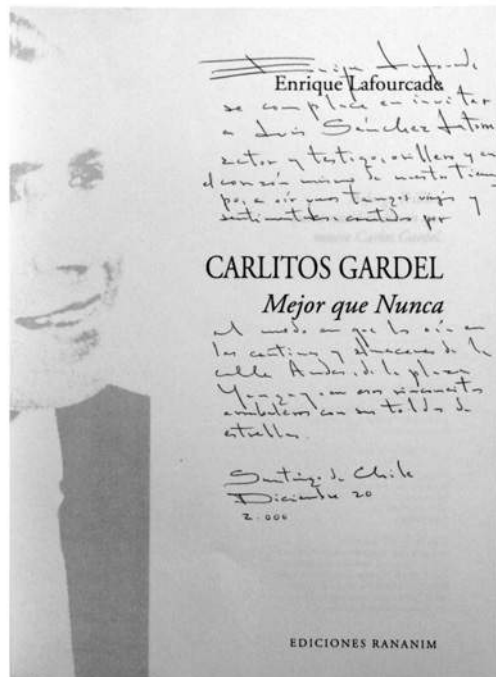 Enrique Lafourcade
Enrique Lafourcade
se complace en invitar
a Luis Sánchez Latorre
actor y testigo, y en
el corazón mismo de nuestro tiem
po, a oír unos tangos viejos y
sentimentales cantados por
CARLITOS GARDEL
Mejor que Nunca
al modo en que los oía en
las cantinas y almacenes de la
calle Andes, de la plaza
Yungay, en esos
con sus toldos de
estrellas.
Santiago de Chile
Diciembre 20
2.000
EDICIONES RANANIM